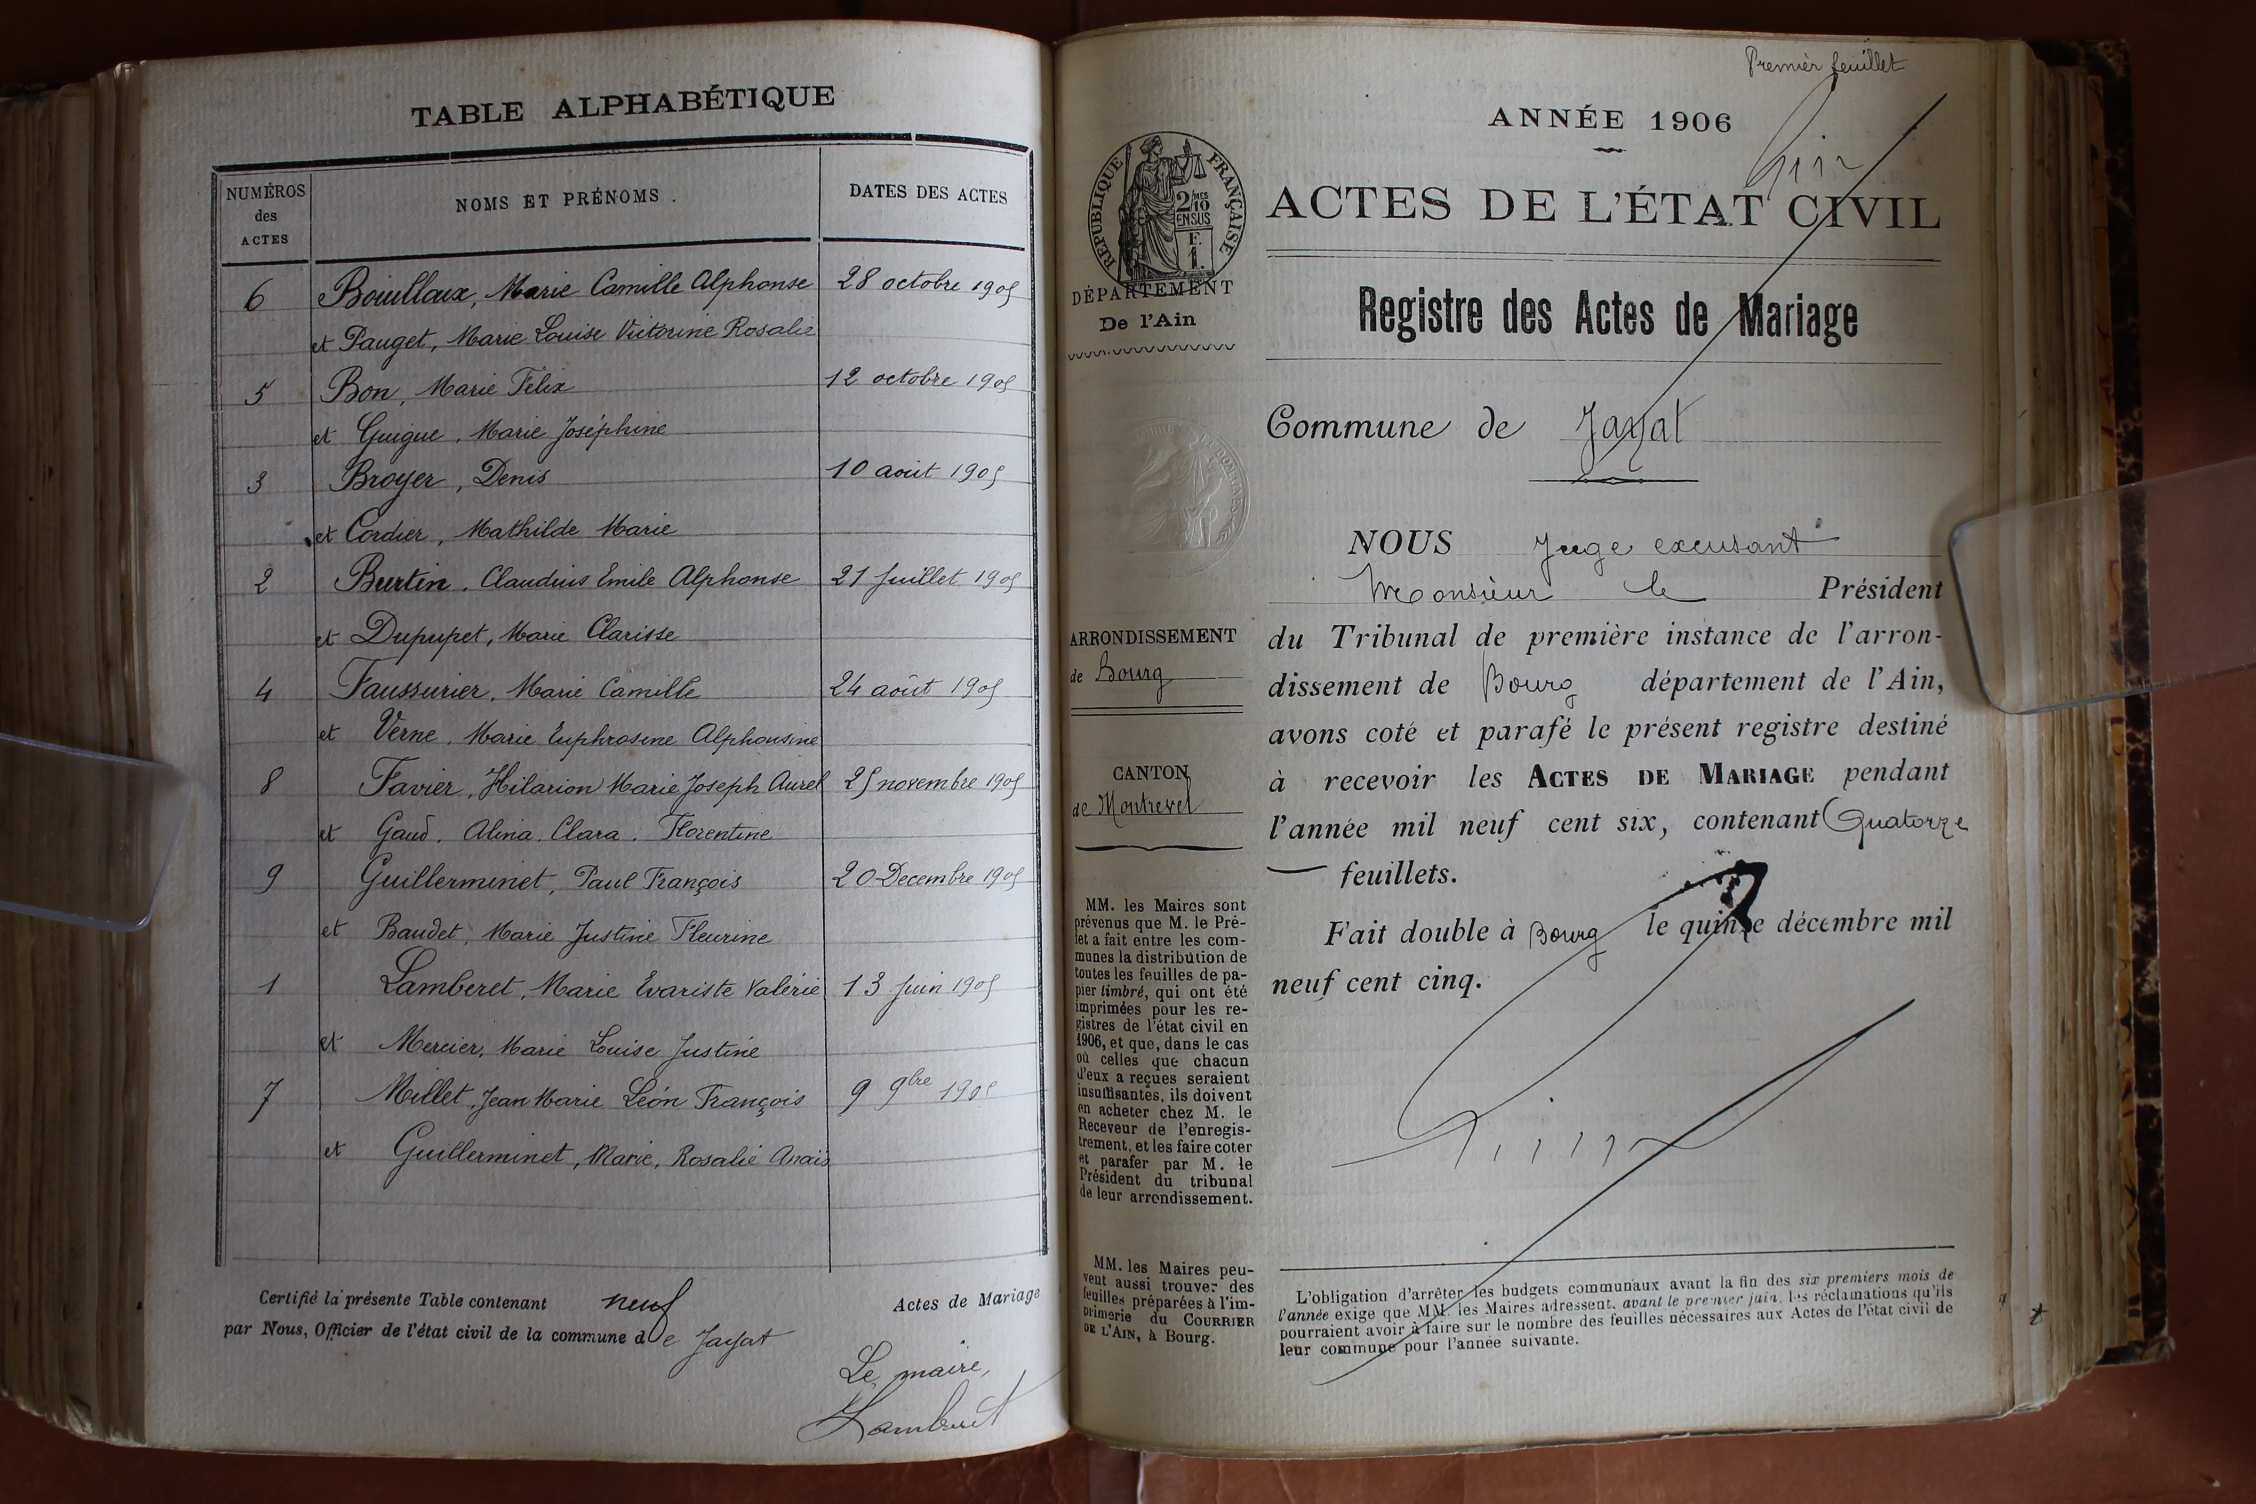 TABLE ALPHABÉTIQUE
NUMÉROS des ACTES
NOMS ET PRÉNOMS.
DATES DES ACTES
6 Bouilloux, Marie Camille Alphonse 28 octobre 1905
et Pauget, Marie Louise Victorine Rosalie
5 Bon, Marie Félix 12 octobre 1905
et Guigue, Marie Joséphine
3 Broyer, Denis 10 août 1905
et Cordier, Mathilde Marie
2 Burtin, Claudius Emile Alphonse 21 Juillet 1905
et Dupupet, Marie Clarisse
4 Faussurier, Marie Camille 24 août 1905
et Verne, Marie Euphrosine Alphonsine
8 Favier, Hilarion Marie Joseph Aurel 25 novembre 1905
et Gaud, Alina, Clara, Florentine
9 Guillerminet, Paul François 20 Decembre 1905
et Baudet, Marie Justine Fleurine
1 Lamberet, Marie Evariste Valérie 13 Juin 1905
et Mercier, Marie Louise Justine
7 Millet, Jean Marie Léon François 9 9bre 1905
et Guillerminet, Marie, Rosalie Anaïs
Certifié la présente Table contenant neuf Actes de Mariage
par Nous, Officier de l'état civil de la commune de Jayat
Le maire,
Lamberet
Premier feuillet
ANNÉE 1906
ACTES DE L'ÉTAT CIVIL
RÉPUBLIQUE FRANÇAISE
2/MES
10
EN SUS
F.
1.
DÉPARTEMENT
De l'Ain
Registre des Actes de Mariage
Commune de Jayat
NOUS Juge excusant
Monsieur le Président
du Tribunal de première instance de l'arron-
dissement de Bourg département de l'Ain,
avons coté et parafé le présent registre destiné
à recevoir les ACTES DE MARIAGE pendant
l'année mil neuf cent six, contenant Quatorze
feuillets.
Fait double à Bourg le quinze décembre mil
neuf cent cinq.
ARRONDISSEMENT
de Bourg
CANTON
de Montrevel
MM. les Maires sont
prévenus que M. le Pré-
fet a fait entre les com-
munes la distribution de
toutes les feuilles de pa-
pier timbré, qui ont été
imprimées pour les re-
gistres de l'état civil en
1906, et que, dans le cas
où celles que chacun
d'eux a reçues seraient
insuffisantes, ils doivent
en acheter chez M. le
Receveur de l'enregis-
trement, et les faire coter
et parafer par M. le
Président du tribunal
de leur arrondissement.
MM. les Maires peu-
vent aussi trouver des
feuilles préparées à l'im-
primerie du COURRIER
DE L'AIN, à Bourg.
L'obligation d'arrêter les budgets communaux avant la fin des six premiers mois de
l'année exige que MM. les Maires adressent, avant le premier juin, les réclamations qu'ils
pourraient avoir à faire sur le nombre des feuilles nécessaires aux Actes de l'état civil de
leur commune pour l'année suivante.